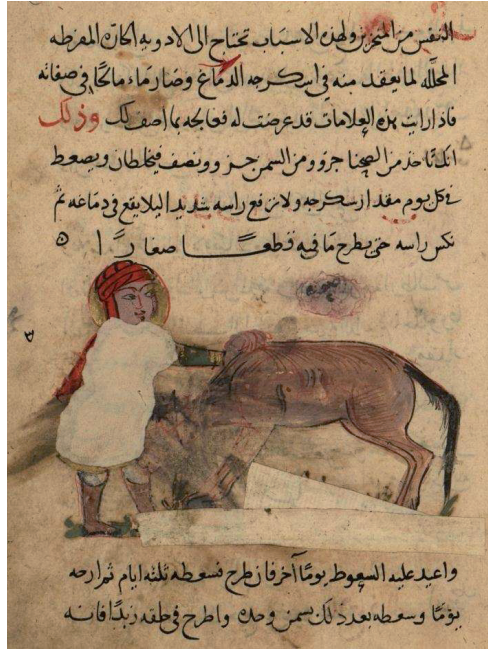 النفس من المنخرين ولهذه الاسباب تحتاج الى الادويه الحاره المفرطه
المحلله لما يعقد منه في اسكرجه الدماغ وصار ماء مالحا في صفائه
فاذا رايت هذه العلامات قد عرضت له فعالجه بما اصف لك وذلك
انك تاخذ من الصحنا جزو ومن السمن جزو ونصف فيخلطان ويصعط
في كل يوم مقدار سكرجه ولا ترفع راسه شديدا ليلا يقع في دماغه ثم
نكس راسه حتى يطرح ما فيه قطعا صغارا
واعيد عليه السعوط يوما آخر فان طرح فسعطه ثلثه ايام ثم ارحه
يوما وسعطه بعد ذلك بسمن وحده واطرح في حلقه زبدا فانه